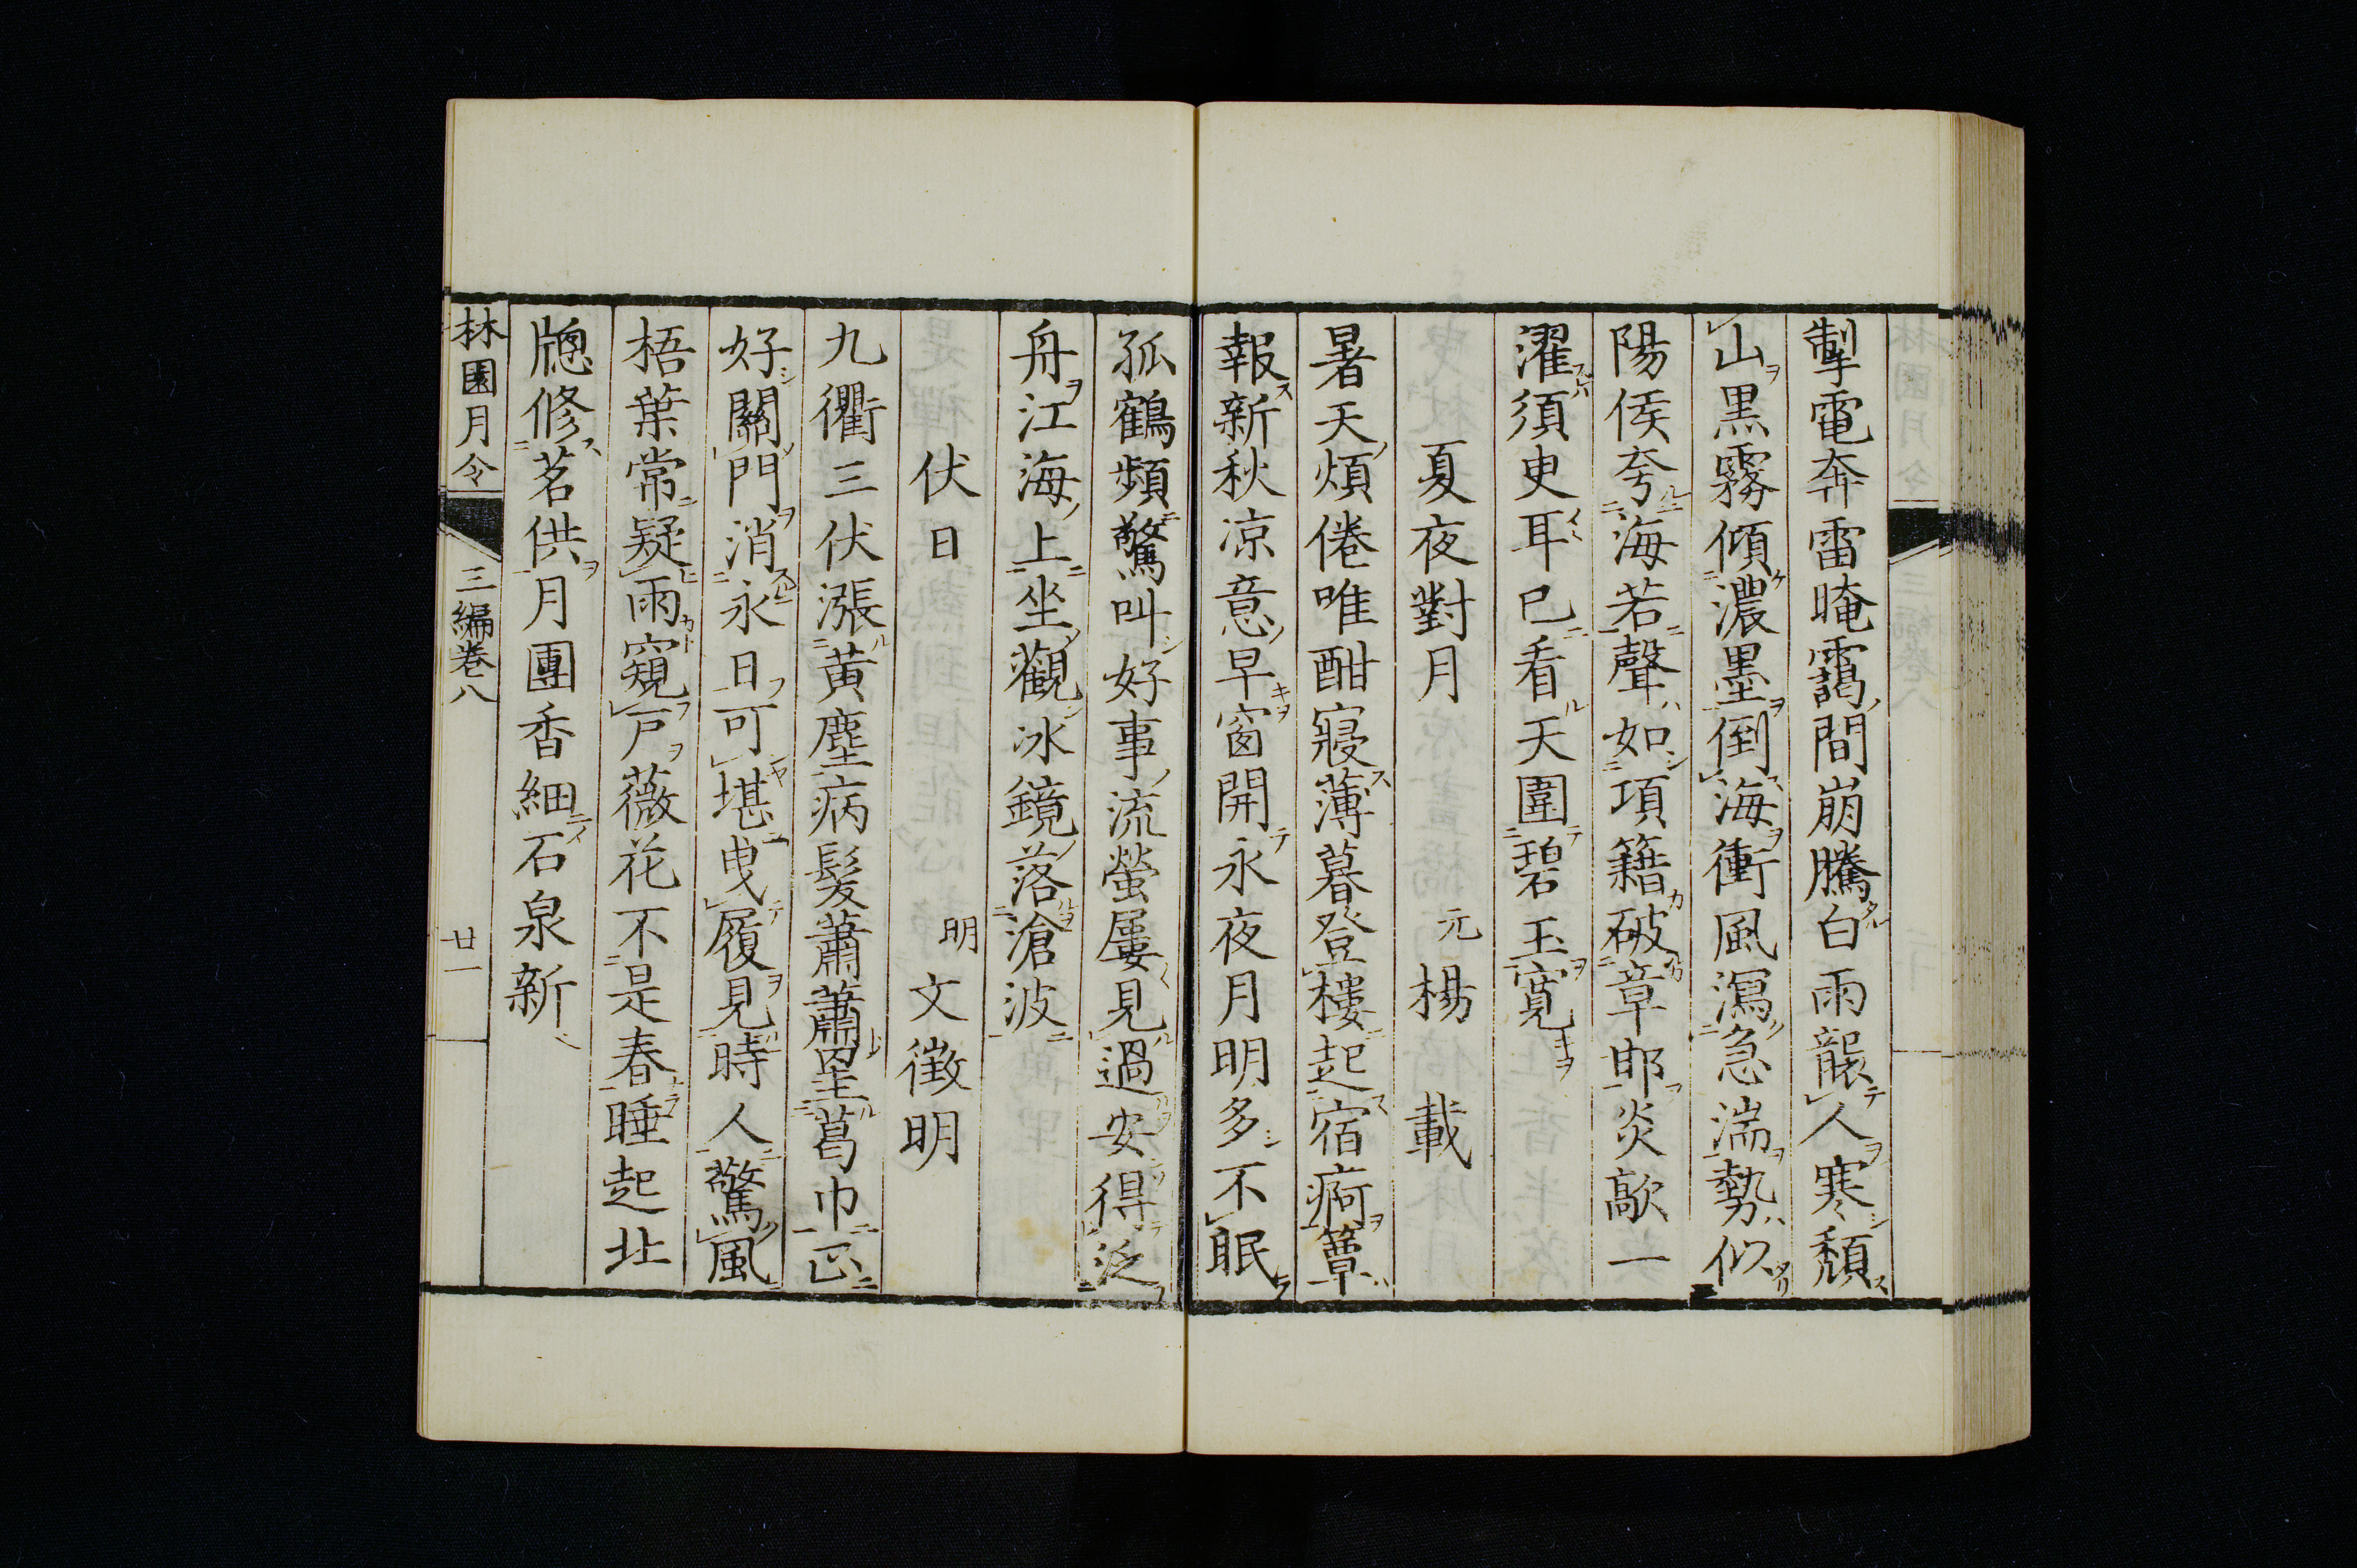 掣電奔雷晻靄間崩騰白雨襲人寒頹
山黒霧傾濃墨倒海衝風瀉急湍勢似
陽侯夸海若聲如項籍破章邯炎歊一
濯須臾耳已看天圍碧玉寬
夏夜對月
元 楊載
暑天煩倦唯酣寢薄暮登樓起宿痾簟
報新秋凉意早窗開永夜月明多不眠
孤鶴頻驚叫好事流螢屢見過安得泛
舟江海上坐觀冰鏡落滄波
伏日
明 文徴明
九衢三伏漲黄塵病髮蕭蕭墨葛巾正
好關門消永日可堪曳履見時人驚風
梧葉常疑雨窺戸薇花不是春睡起北
牕修茗供月團香細石泉新
林園月令 三編巻八 廿一